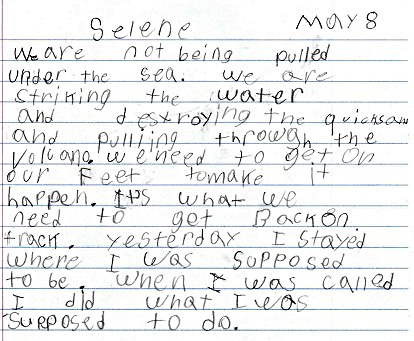 Selene MAY 8
we are not being pulled
under the sea. we are
striking the water
and destroying the quicksan
and pulliing throwgh the
volcano. we need to get on
our Feet to make it
happen. It's what we
need to get Back on
track. yesterday I stayed
where I was supposed
to be. when I was called
I did what I was
supposed to do.